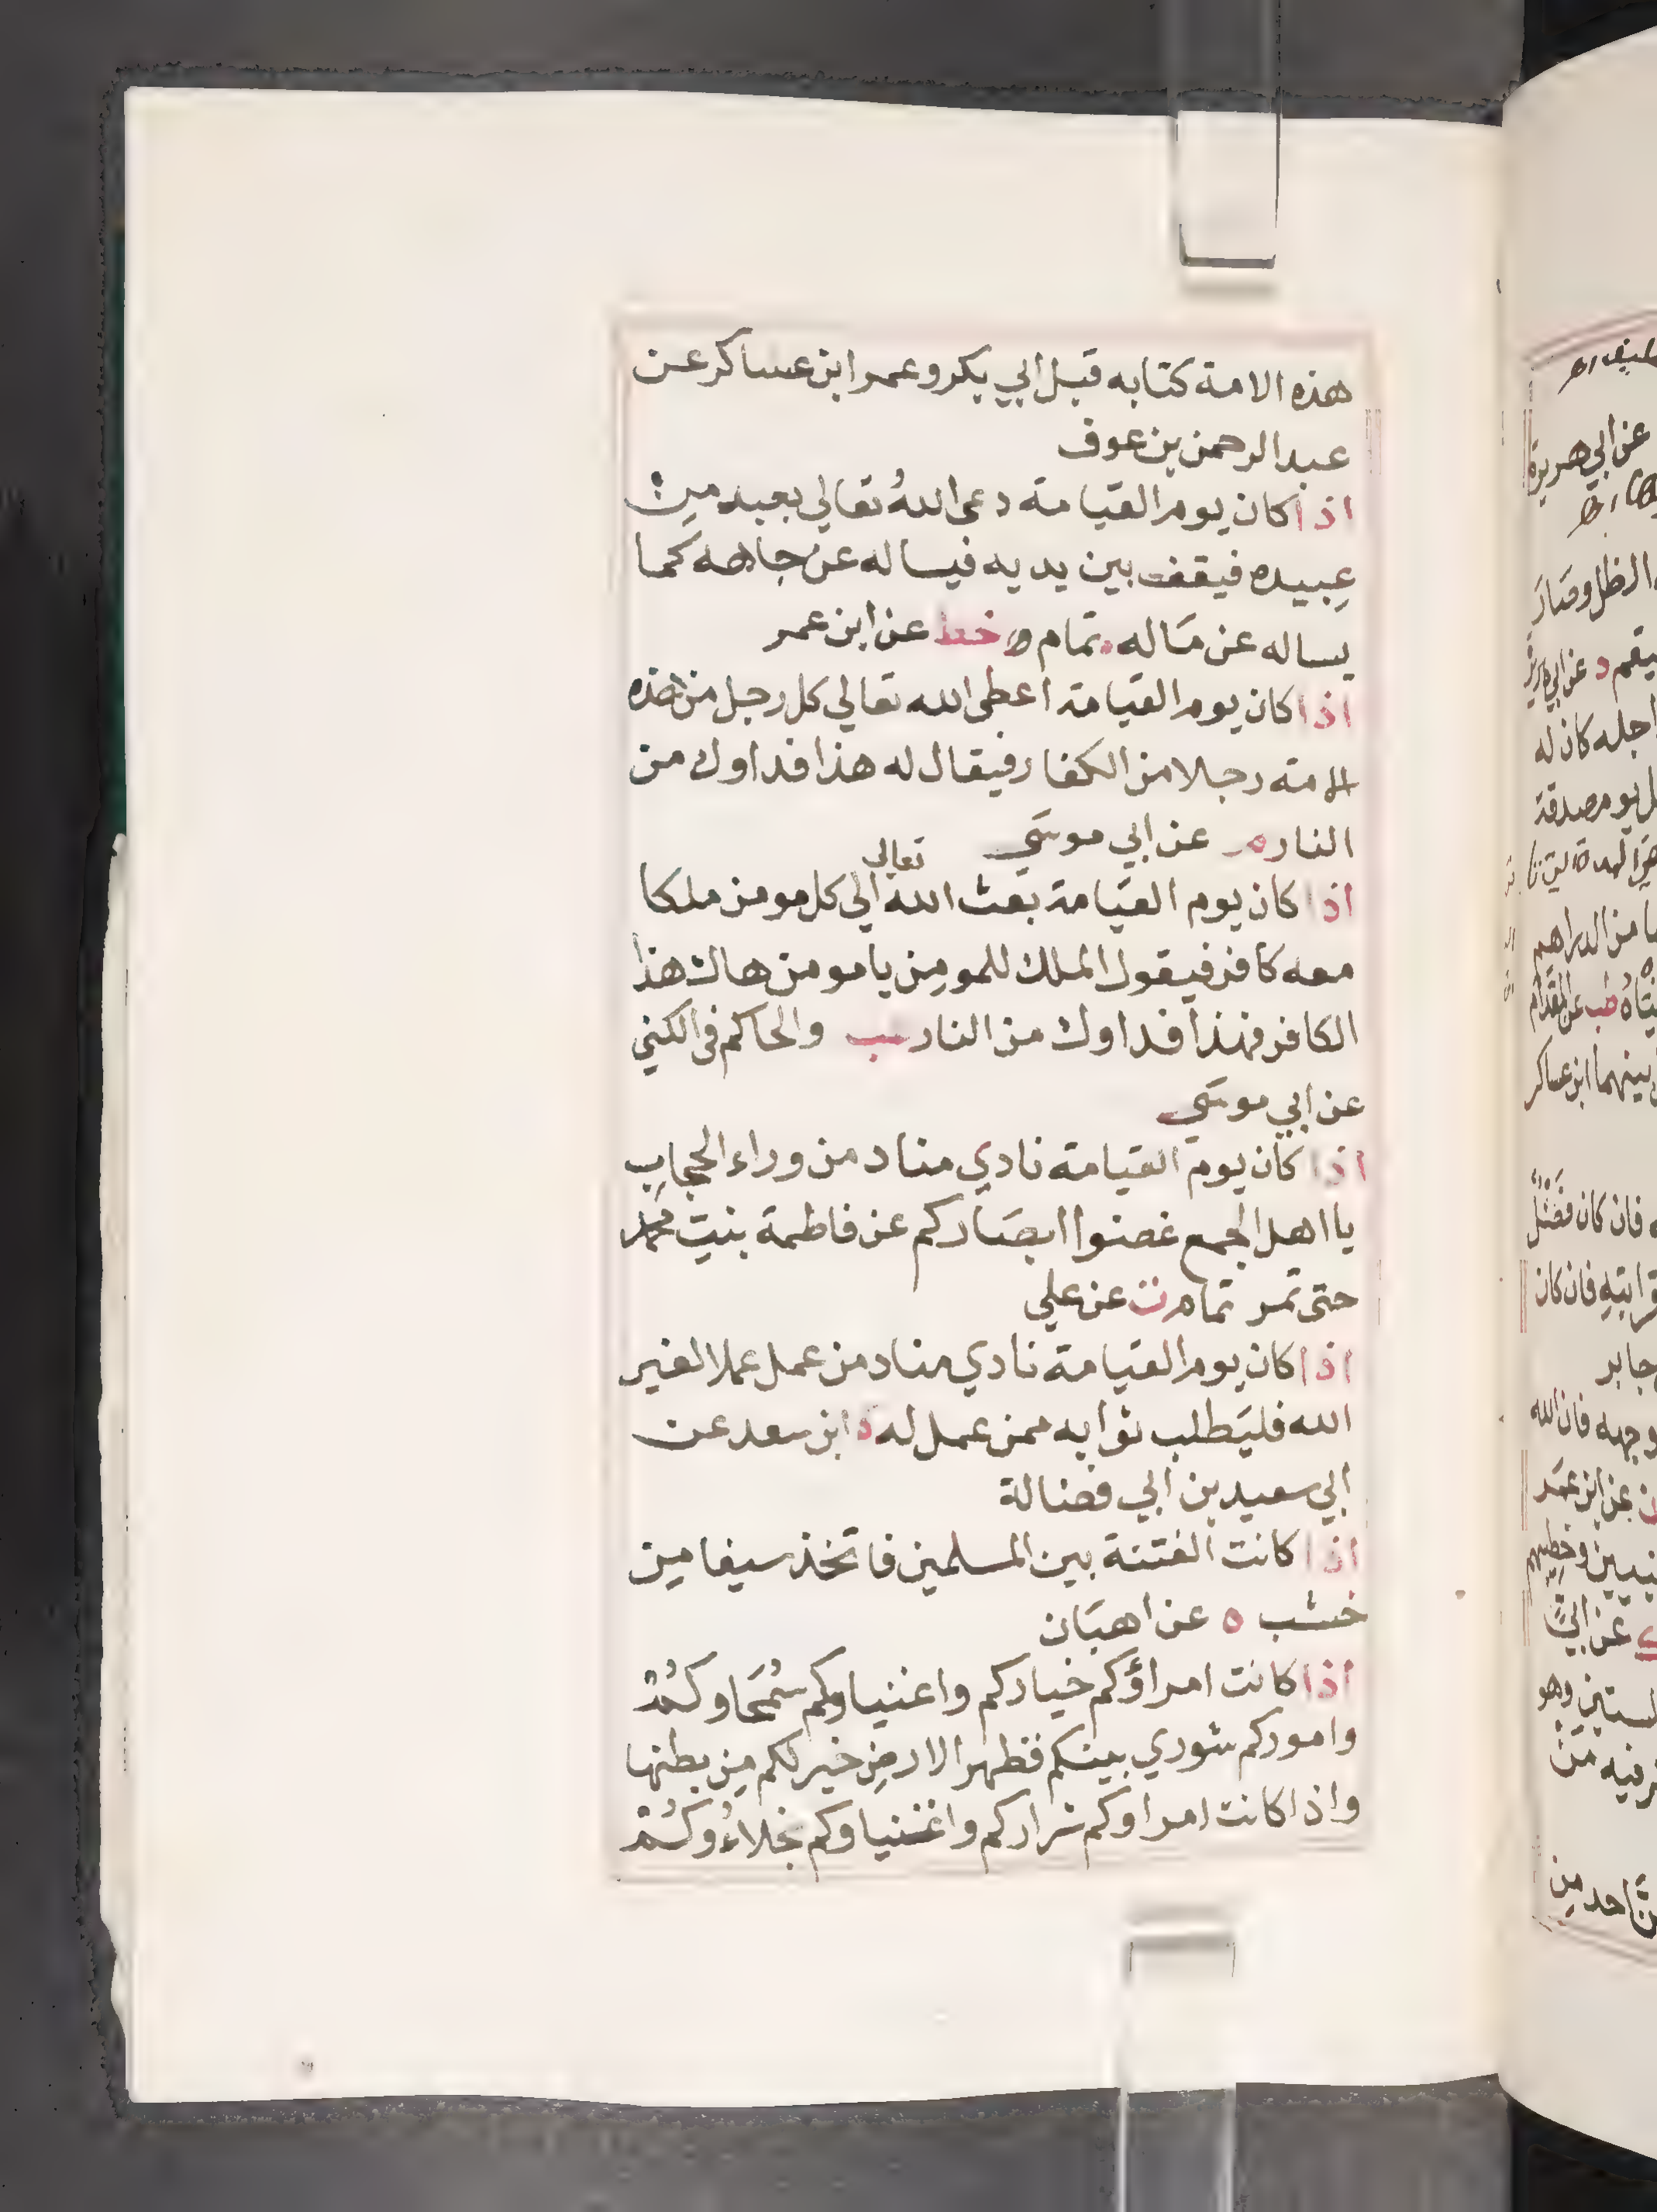 هذه الامة كتابه قبل ابي بكر وعمر ابن عساكر عن
عبد الرحمن بن عوف
اذا كان يوم القيامة دعى اللهُ تعالي بعبد مِن
عِبيده فيقف بين يديه فيساله عن جاهه كما
يساله عن مَاله تمام خط عن ابن عمر
اذا كان يوم القيامة اعطى الله تعالي كل رجل من هذه
الامة رجلا من الكفار فيقال له هذا فداوك من
النار م عن ابي موسَي
اذا كان يوم القيامة بعث الله تعالي الي كل مومن ملكا
معه كافر فيقول الملك للمومِن يا مومن هاك هذا
الكافر فهذا فداوك من النار طب والحاكم في الكني
عن ابي موسَي
اذا كان يوم القيامة نادي مناد من وراء الحجابِ
يا اهل الجمع غضوا ابصَاركم عن فاطمة بنتِ محمد
حتى تمر تمام ك عن علي
اذا كان يوم القيامة نادي مناد من عمل عملا لغير
الله فليَطلب ثوابه ممن عمل له ابن سعد عن
ابي سعيد بن ابي فضالة
اذا كانت الفتنة بين المسلمين فاتخذ سيفا من
خشب ه عن اهبَان
اذا كانت امراؤكم خياركم واغنياوكم سُمَحاوكُمْ
واموركم شوري بينكم فظهر الارضِ خير لكم مِن بطنها
واذا كانت امراوكم شراركم واغنياوكم بخلاءُوكُمْ
عن ابي هريرة
اجله كان له
ل يوم صدقة
ا من الدراهم
بينهما ابن عساكر
ه فان كان فَضَْلٌ
قرابتِهِ فان كان
جابر
وجهه فان الله
عن ابن عمَر